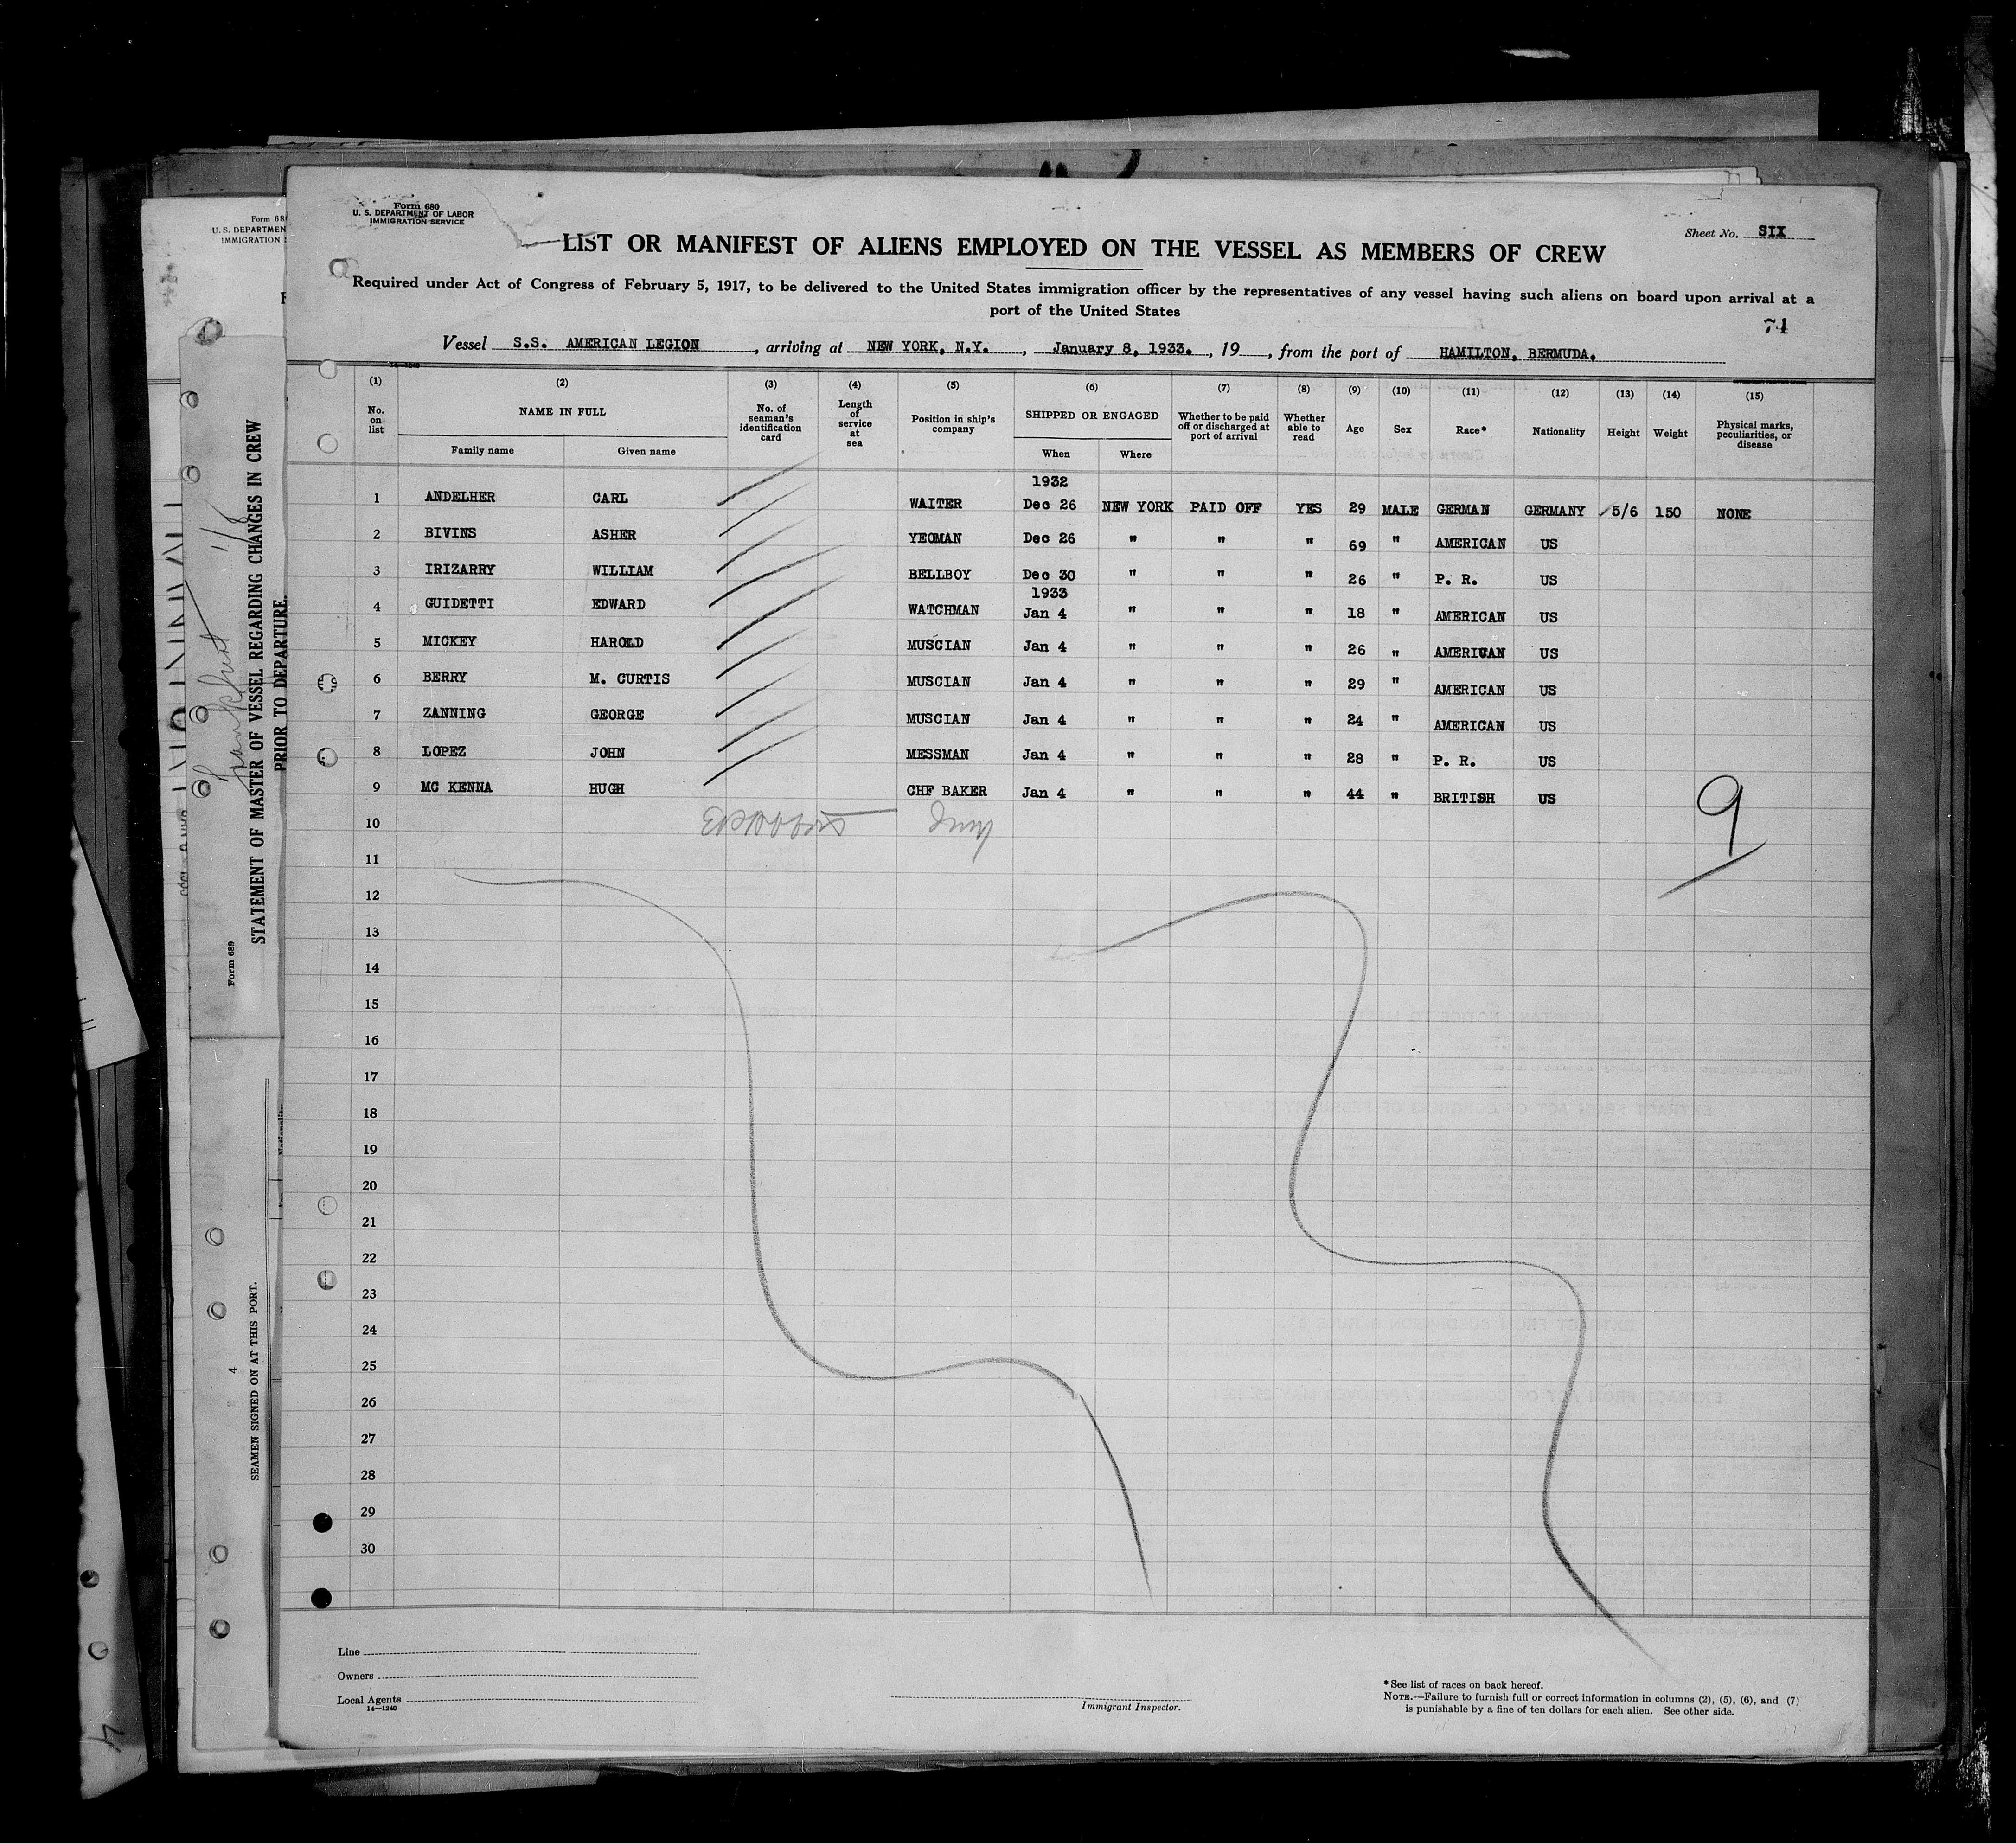 Form 680
U. S. DEPARTMENT OF LABOR
IMMIGRATION SERVICE
Sheet No. SIX
LIST OR MANIFEST OF ALIENS EMPLOYED ON THE VESSEL AS MEMBERS OF CREW
Required under Act of Congress of February 5, 1917, to be delivered to the United States immigration officer by the representatives of any vessel having such aliens on board upon arrival at a
port of the United States
74
Vessel S.S. AMERICAN LEGION, arriving at NEW YORK, N.Y., January 8, 1933., 19 , from the port of HAMILTON, BERMUDA.
14—1240
(1) (2) (3) (4) (5) (6) (7) (8) (9) (10) (11) (12) (13) (14) (15)
No. on list NAME IN FULL Family name Given name No. of seaman's identification card Length of service at sea Position in ship's company SHIPPED OR ENGAGED When Where Whether to be paid off or discharged at port of arrival Whether able to read Age Sex Race* Nationality Height Weight Physical marks, peculiarities, or disease
1932
1 ANDELHER CARL WAITER Dec 26 NEW YORK PAID OFF YES 29 MALE GERMAN GERMANY 5/6 150 NONE
2 BIVINS ASHER YEOMAN Dec 26 " " " 69 " AMERICAN US
3 IRIZARRY WILLIAM BELLBOY Dec 30 " " " 26 " P. R. US
1933
4 GUIDETTI EDWARD WATCHMAN Jan 4 " " " 18 " AMERICAN US
5 MICKEY HAROLD MUSCIAN Jan 4 " " " 26 " AMERICAN US
6 BERRY M. CURTIS MUSCIAN Jan 4 " " " 29 " AMERICAN US
7 ZANNING GEORGE MUSCIAN Jan 4 " " " 24 " AMERICAN US
8 LOPEZ JOHN MESSMAN Jan 4 " " " 28 " P. R. US
9 MC KENNA HUGH CHF BAKER Jan 4 " " " 44 " BRITISH US
9
10
11
12
13
14
15
16
17
18
19
20
21
22
23
24
25
26
27
28
29
30
Line
Owners
Local Agents
14—1240
Immigrant Inspector.
*See list of races on back hereof.
NOTE.—Failure to furnish full or correct information in columns (2), (5), (6), and (7)
is punishable by a fine of ten dollars for each alien. See other side.
Form 68
U. S. DEPARTMEN
IMMIGRATION
Form 689
STATEMENT OF MASTER OF VESSEL REGARDING CHANGES IN CREW
PRIOR TO DEPARTURE.
4
SEAMEN SIGNED ON AT THIS PORT.